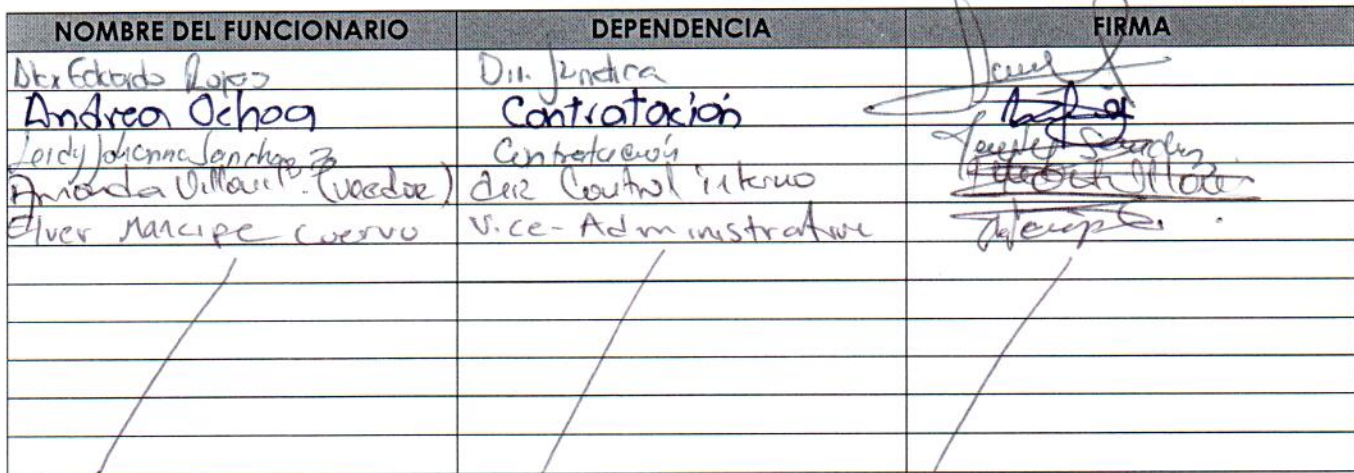 NOMBRE DEL FUNCIONARIO DEPENDENCIA FIRMA
Rojas Dir. Juridica
Andrea Ochoa Contratación
Leidy Johanna Sanchez Contratación Sanchez
(veedor) Control interno
Elver Mancipe Cuervo Vice-Administrativa